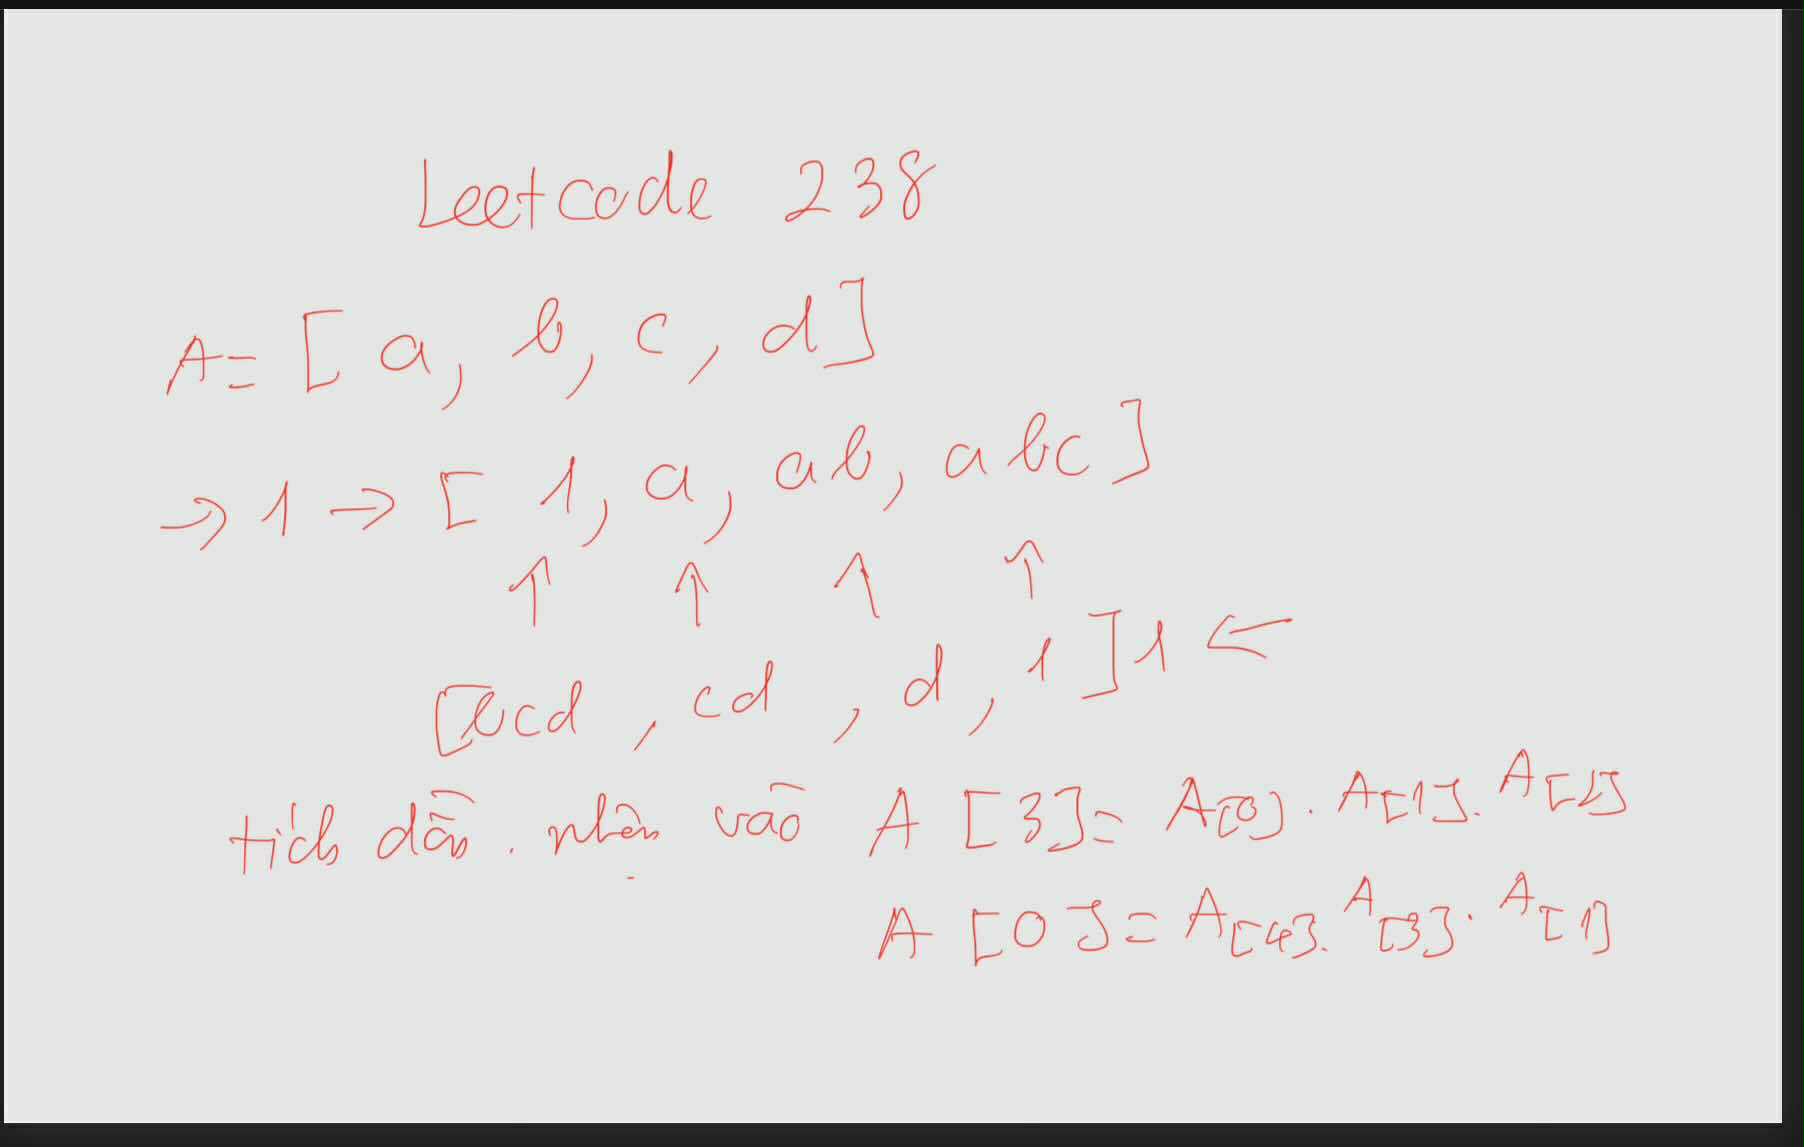 Leetcode 238
A= [ a, b, c, d]
→ 1 → [ 1, a, ab, abc ]
↑ ↑ ↑ ↑
[bcd , cd , d , 1 ] 1 ←
tích dần . nhận vào A [3]= A[0] . A[1]. A[2]
A [0]= A[4]. A[3]. A[1]